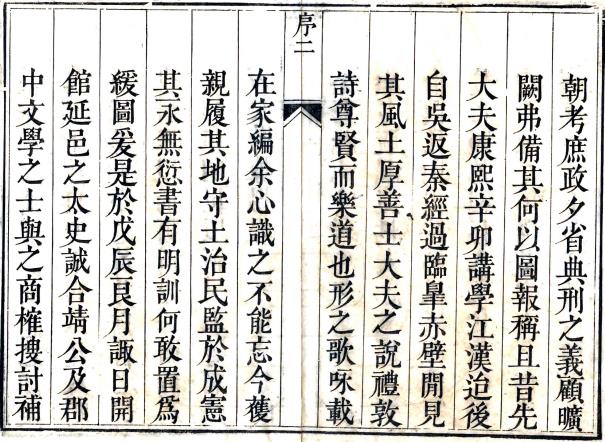 朝考庶政夕省典刑之義顧曠
闕弗備其何以圖報稱且昔先
大夫康熙辛卯講學江漢迨後
自吳返秦經過臨皐赤壁間見
其風土厚善士大夫之說禮敦
詩尊賢而樂道也形之歌咏載
序二
在家編余心識之不能忘今蒦
親履其地守土治民監於成憲
其永無愆書有明訓何敢置爲
緩圖爰是於戊辰良月諏日開
館延邑之太史誠合靖公及郡
中文學之士與之商榷搜討補